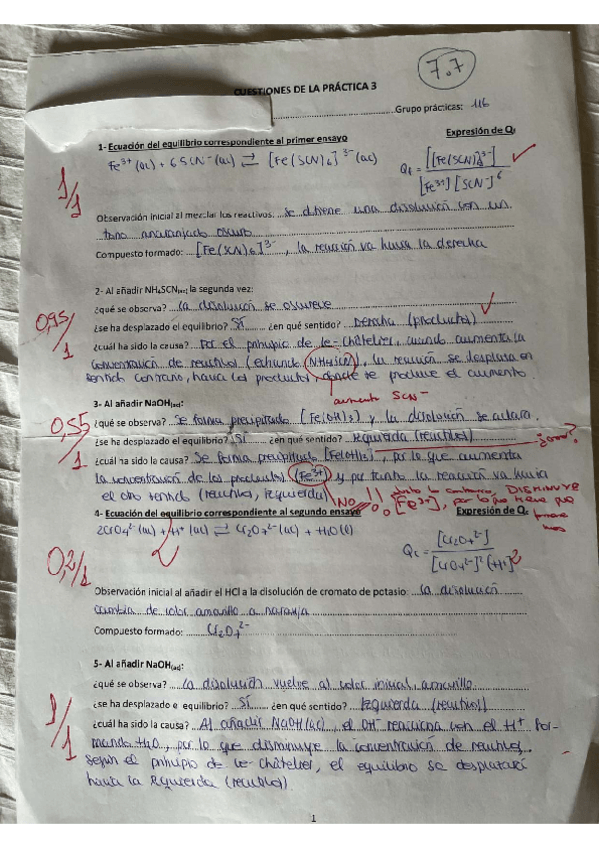 7.7
CUESTIONES DE LA PRÁCTICA 3
Grupo prácticas: 116
1- Ecuación del equilibrio correspondiente al primer ensayo Expresión de Qc
Fe³⁺(ac) + 6SCN⁻(ac) ⇌ [Fe(SCN)₆]³⁻(ac) Qc = [[Fe(SCN)₆]³⁻] / [Fe³⁺][SCN⁻]⁶
1/1
Observación inicial al mezclar los reactivos: se obtiene una disolución con un
tono anaranjado oscuro
Compuesto formado: [Fe(SCN)₆]³⁻, la reacción va hacia la derecha
2- Al añadir NH₄SCN(ac) la segunda vez:
0,95/1
¿qué se observa? La disolución se oscurece
¿se ha desplazado el equilibrio? Sí ¿en qué sentido? Derecha (productos)
¿cuál ha sido la causa? Por el principio de Le-Châtelier, cuando aumenta la
concentración de reactivos (echando NH₄SCN), la reacción se desplaza en
sentido contrario, hacia los productos, donde se produce el aumento
aumenta SCN⁻
3- Al añadir NaOH(ac):
0,55/1
¿qué se observa? Se forma precipitado [Fe(OH)₃] y la disolución se aclara.
¿se ha desplazado el equilibrio? Sí ¿en qué sentido? Izquierda (reactivos)
¿cuál ha sido la causa? Se forma precipitado [Fe(OH)₃], por lo que aumenta
la concentración de los productos (Fe³⁺) y por tanto la reacción va hacia
el otro sentido (reactivos, izquierda) NO!! justo lo contrario, DISMINUYE
[Fe³⁺], por lo que tiene que
4- Ecuación del equilibrio correspondiente al segundo ensayo Expresión de Qc
2CrO₄²⁻(ac) + H⁺(ac) ⇌ Cr₂O₇²⁻(ac) + H₂O(l) Qc = [Cr₂O₇²⁻] / [CrO₄²⁻]²[H⁺]
2 2
0,2/1
Observación inicial al añadir el HCl a la disolución de cromato de potasio: La disolución
cambia de color amarillo a naranja
Compuesto formado: Cr₂O₇²⁻
5- Al añadir NaOH(ac):
1/1
¿qué se observa? La disolución vuelve al color inicial, amarillo
¿se ha desplazado el equilibrio? Sí ¿en qué sentido? Izquierda (reactivos)
¿cuál ha sido la causa? Al añadir NaOH(ac), el OH⁻ reacciona con el H⁺ for-
mando H₂O, por lo que disminuye la concentración de reactivos.
Según el principio de Le-Châtelier, el equilibrio se desplazará
hacia la izquierda (reactivos)
1